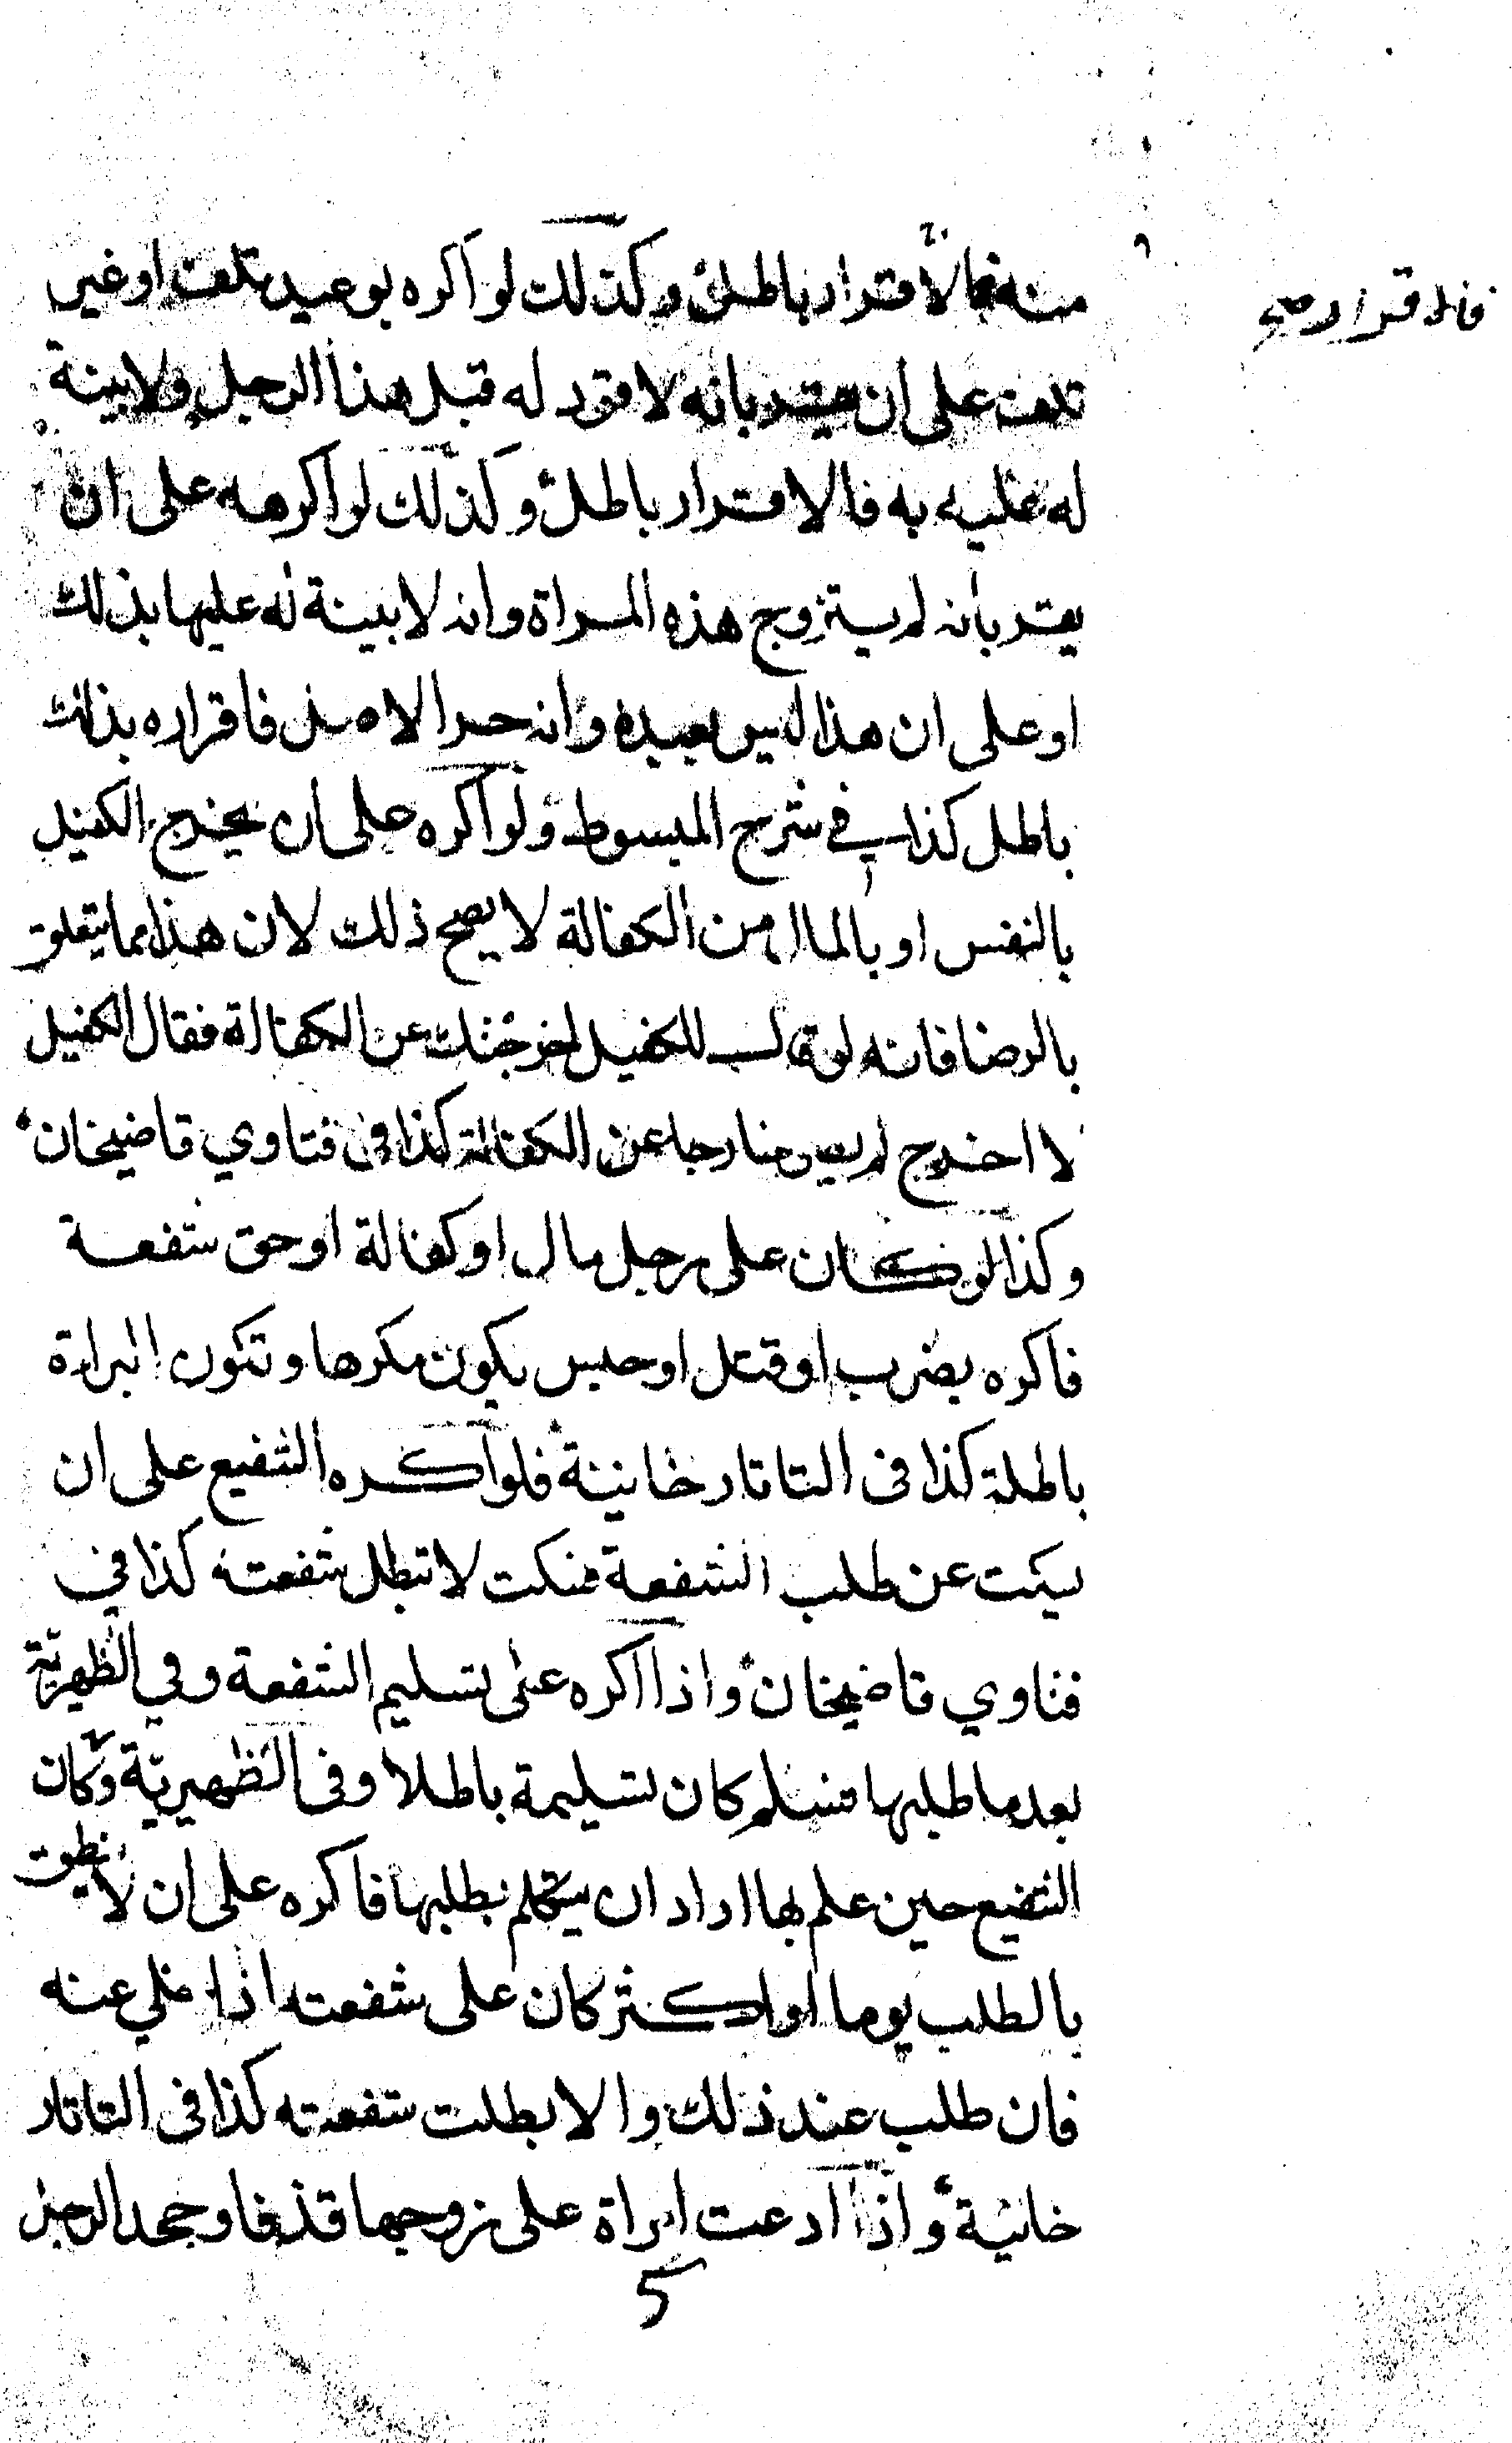 منه فالاقرار باطل وكذلك لو اكره بوعيد تلف او غير
تلف على ان يقر بانه لا قود له قبل هذا الرجل ولا بينة
له عليه به فالاقرار باطل وكذلك لو اكرهه على ان
يقر بانه لم يتزوج هذه المراة وانه لا بينة له عليها بذلك
او على ان هذا ليس بعبده وانه حر الاصل فاقراره بذلك
باطل كذا في شرح المبسوط ولو اكره على ان يخرج الكفيل
بالنفس او بالمال من الكفالة لا يصح ذلك لان هذا مما يتعلق
بالرضا فانه لو قال للكفيل اخرجتك عن الكفالة فقال الكفيل
لا اخرج لم يصر خارجا عن الكفالة كذا في فتاوي قاضيخان
وكذا لو كان على رجل مال او كفالة او حق شفعة
فاكره بضرب او قتل او حبس يكون مكرها وتكون البراءة
باطلة كذا في التاتارخانية فلو اكره الشفيع على ان
يسكت عن طلب الشفعة فسكت لا تبطل شفعته كذا في
فتاوي قاضيخان واذا اكره على تسليم الشفعة وفي الظهيرية
بعد ما طلبها فسلم كان تسليمه باطلا وفي الظهيرية وكان
الشفيع حين علم بها اراد ان يتكلم بطلبها فاكره على ان لا ينطق
بالطلب يوما او اكثر كان على شفعته اذا خلي عنه
فان طلب عند ذلك والا بطلت شفعته كذا في التاتار
خانية واذا ادعت امراة على زوجها قذفا وجحد الرجل
فالاقرار صح